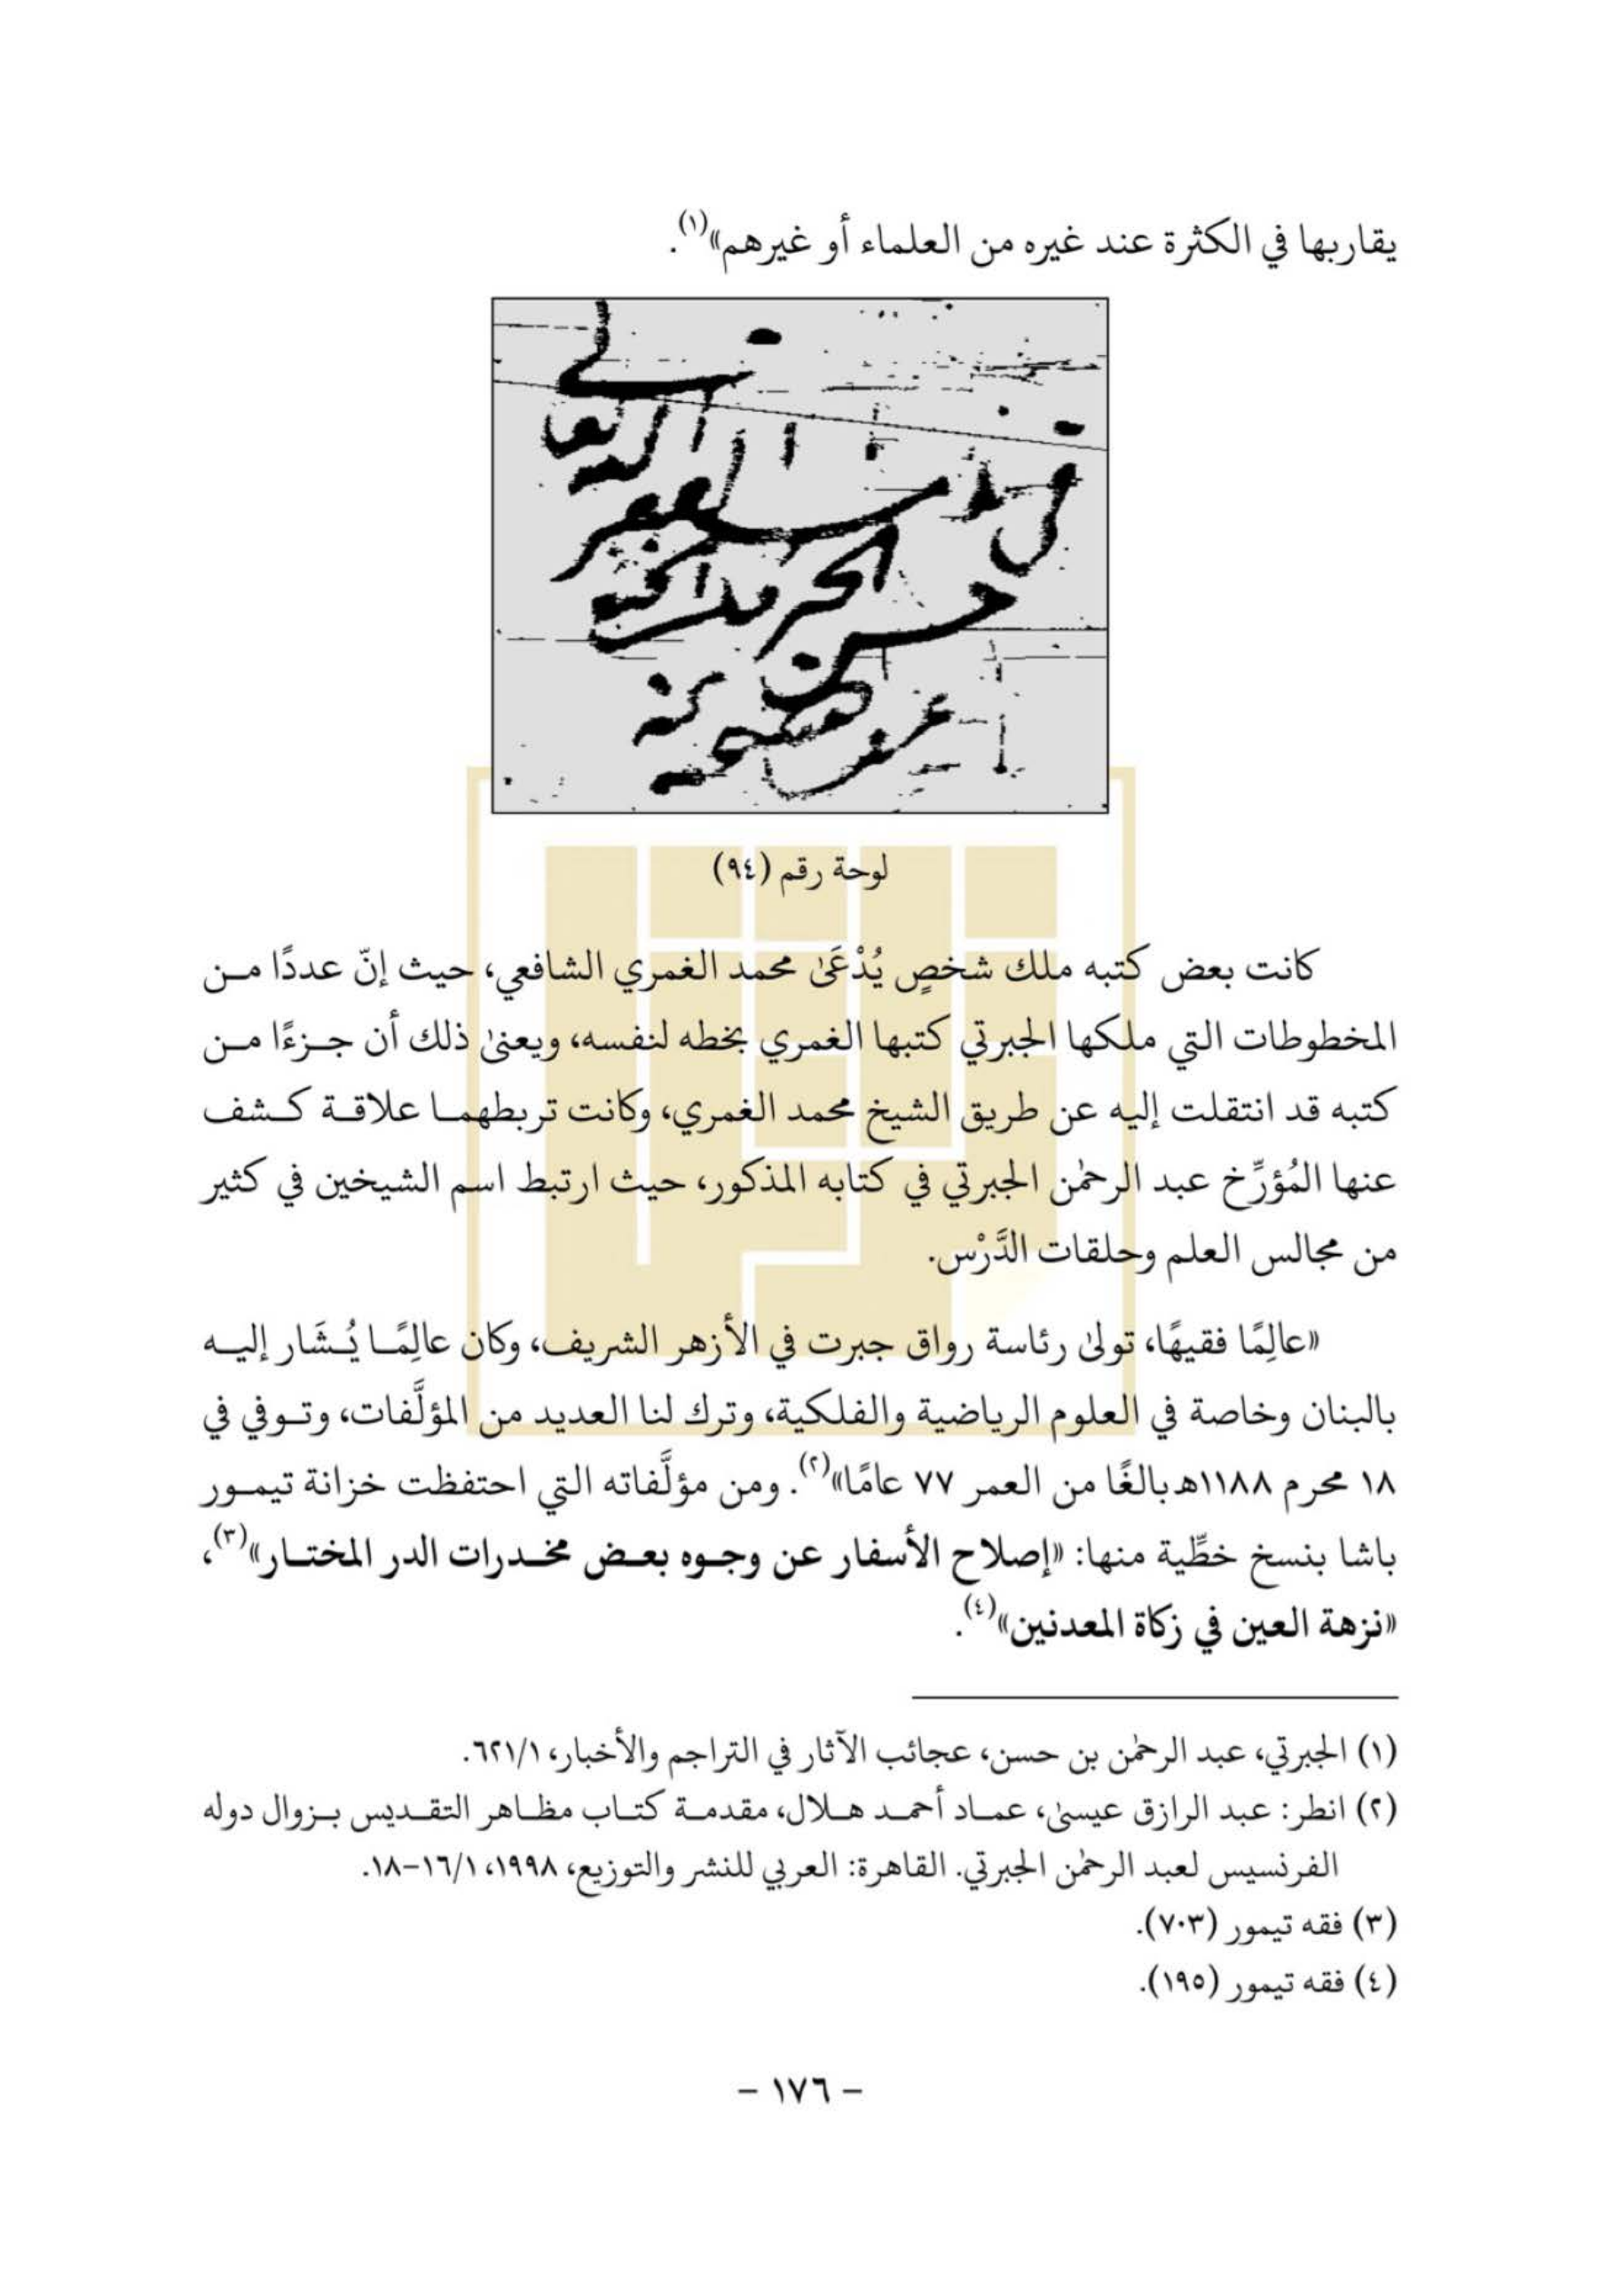 يقاربها في الكثرة عند غيره من العلماء أو غيرهم»(١).
لوحة رقم (٩٤)
كانت بعض كتبه ملك شخصٍ يُدْعَىٰ محمد الغمري الشافعي، حيث إنّ عددًا من
المخطوطات التي ملكها الجبرتي كتبها الغمري بخطه لنفسه، ويعنىٰ ذلك أن جزءًا من
كتبه قد انتقلت إليه عن طريق الشيخ محمد الغمري، وكانت تربطهما علاقة كشف
عنها المُؤرِّخ عبد الرحمٰن الجبرتي في كتابه المذكور، حيث ارتبط اسم الشيخين في كثير
من مجالس العلم وحلقات الدَّرْس.
«عالِمًا فقيهًا، تولىٰ رئاسة رواق جبرت في الأزهر الشريف، وكان عالِمًا يُشَار إليه
بالبنان وخاصة في العلوم الرياضية والفلكية، وترك لنا العديد من المؤلَّفات، وتوفي في
١٨ محرم ١١٨٨هـ بالغًا من العمر ٧٧ عامًا»(٢). ومن مؤلَّفاته التي احتفظت خزانة تيمور
باشا بنسخ خطِّية منها: «إصلاح الأسفار عن وجوه بعض مخدرات الدر المختار»(٣)،
«نزهة العين في زكاة المعدنين»(٤).
(١) الجبرتي، عبد الرحمٰن بن حسن، عجائب الآثار في التراجم والأخبار، ٦٢١/١.
(٢) انظر: عبد الرازق عيسىٰ، عماد أحمد هلال، مقدمة كتاب مظاهر التقديس بزوال دوله
الفرنسيس لعبد الرحمٰن الجبرتي. القاهرة: العربي للنشر والتوزيع، ١٩٩٨، ١٦/١-١٨.
(٣) فقه تيمور (٧٠٣).
(٤) فقه تيمور (١٩٥).
– ١٧٦ –